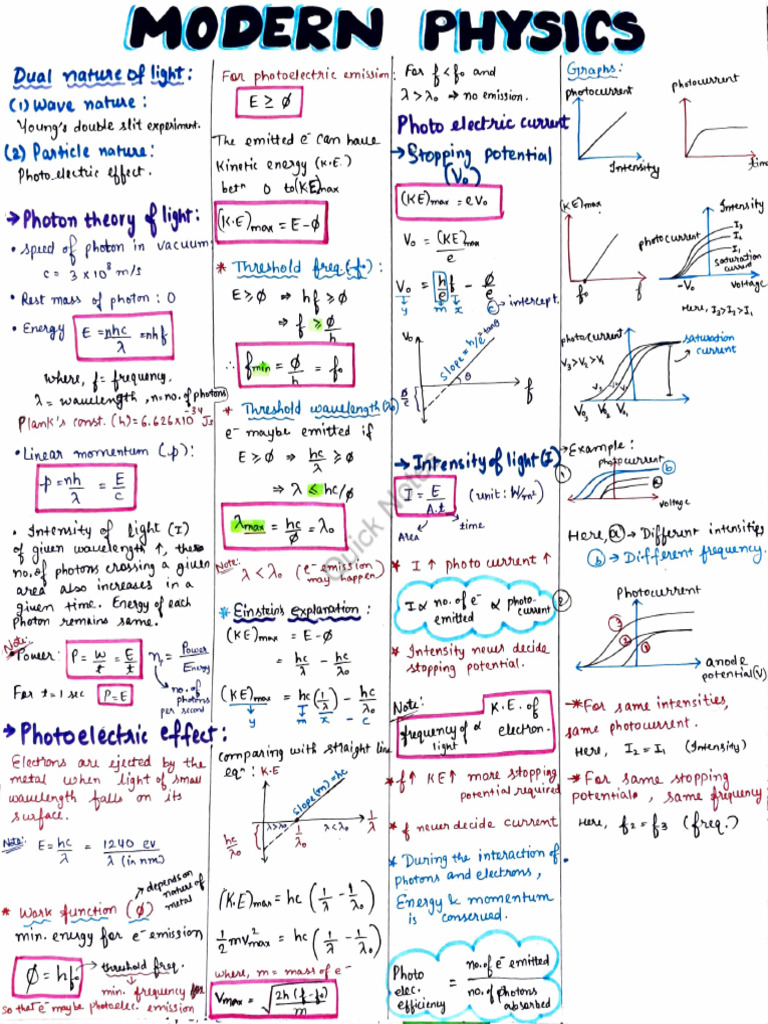 MODERN PHYSICS
Dual nature of light:
(1) Wave nature:
Young's double slit experiment.
(2) Particle nature:
Photo electric effect.
→ Photon theory of light:
• Speed of photon in vacuum:
c = 3 x 10⁸ m/s
• Rest mass of photon : 0
• Energy E = nhc/λ = nhf
where, f = frequency.
λ = wavelength, n = no. of photons
Plank's const. (h) = 6.626x10⁻³⁴ Js
• Linear momentum (p):
p = nh/λ = E/c
• Intensity of light (I)
of given wavelength ↑, the
no. of photons crossing a given
area also increases in a
given time. Energy of each
photon remains same.
Note:
• Power: P = W/t = E/t
n = Power/Energy
no. of
photons
per second
For t = 1 sec P = E
→ Photoelectric effect:
Electrons are ejected by the
metal when light of small
wavelength falls on its
surface.
Note: E = hc/λ = 1240 ev/λ (in nm)
depends on
nature of
metal
* Work function (φ)
min. energy for e⁻ emission
φ = hf₀ → threshold freq.
min. frequency for
so that e⁻ maybe photoelec. emission
For photoelectric emission:
E ≥ φ
The emitted e⁻ can have
Kinetic energy (K.E.)
betⁿ 0 to (KE)max
(K.E)max = E - φ
* Threshold freq. (f₀):
E ≥ φ ⇒ hf ≥ φ
⇒ f ≥ φ/h
∴ fmin = φ/h = f₀
* Threshold wavelength (λ₀)
e⁻ maybe emitted if
E ≥ φ ⇒ hc/λ ≥ φ
⇒ λ ≤ hc/φ
λmax = hc/φ = λ₀
Note: λ < λ₀ (e⁻ emission
may happen)
* Einstein's explanation:
(KE)max = E - φ
= hc/λ - hc/λ₀
(KE)max = hc (1/λ) - hc/λ₀
y m x - c
comparing with straight line
eqⁿ: K.E
slope(m) = hc
λ > λ₀ 1/λ₀ λ < λ₀ 1/λ
hc/λ₀
(K.E)max = hc (1/λ - 1/λ₀)
1/2 mv²max = hc (1/λ - 1/λ₀)
where, m = mass of e⁻
Vmax = √2h(f-f₀)/m
For f < f₀ and
λ > λ₀ → no emission.
Photo electric current
→ Stopping potential
(V₀)
(KE)max = eV₀
V₀ = (KE)max/e
V₀ = h/e f - φ/e
y m x c → intercept.
V₀
slope = h/e = tanθ
θ
f
φ/e
→ Intensity of light (I)
I = E/A.t (unit: W/m²)
Area time
* I ↑ photo current ↑
I ∝ no. of e⁻ emitted ∝ photocurrent
* Intensity never decide
stopping potential.
Note:
frequency of light ∝ K.E. of electron.
* f↑ KE↑ more stopping
potential required
* f never decide current
* During the interaction of
photons and electrons,
Energy & momentum
is conserved.
Photo
elec.
efficiency = no. of e⁻ emitted/no. of photons absorbed
Graphs:
photocurrent
Intensity
photocurrent
time
(KE)max
f₀ f
Intensity
photocurrent
I₃
I₂
I₁
saturation
current
-V₀ voltage
Here, I₃>I₂>I₁
photocurrent
V₃ > V₂ > V₁
saturation
current
V₃ V₂ V₁
V₀₃ V₀₂ V₀₁
→ Example:
①
photocurrent
b
a
voltage
Here, (a) → Different intensities
(b) → Different frequency.
②
Photocurrent
3
2
1
anode
potential(V)
-* For same intensities,
same photocurrent.
Here, I₂ = I₁ (Intensity)
-* For same stopping
potential, same frequency
Here, f₂ = f₃ (freq.)
Quick Notes